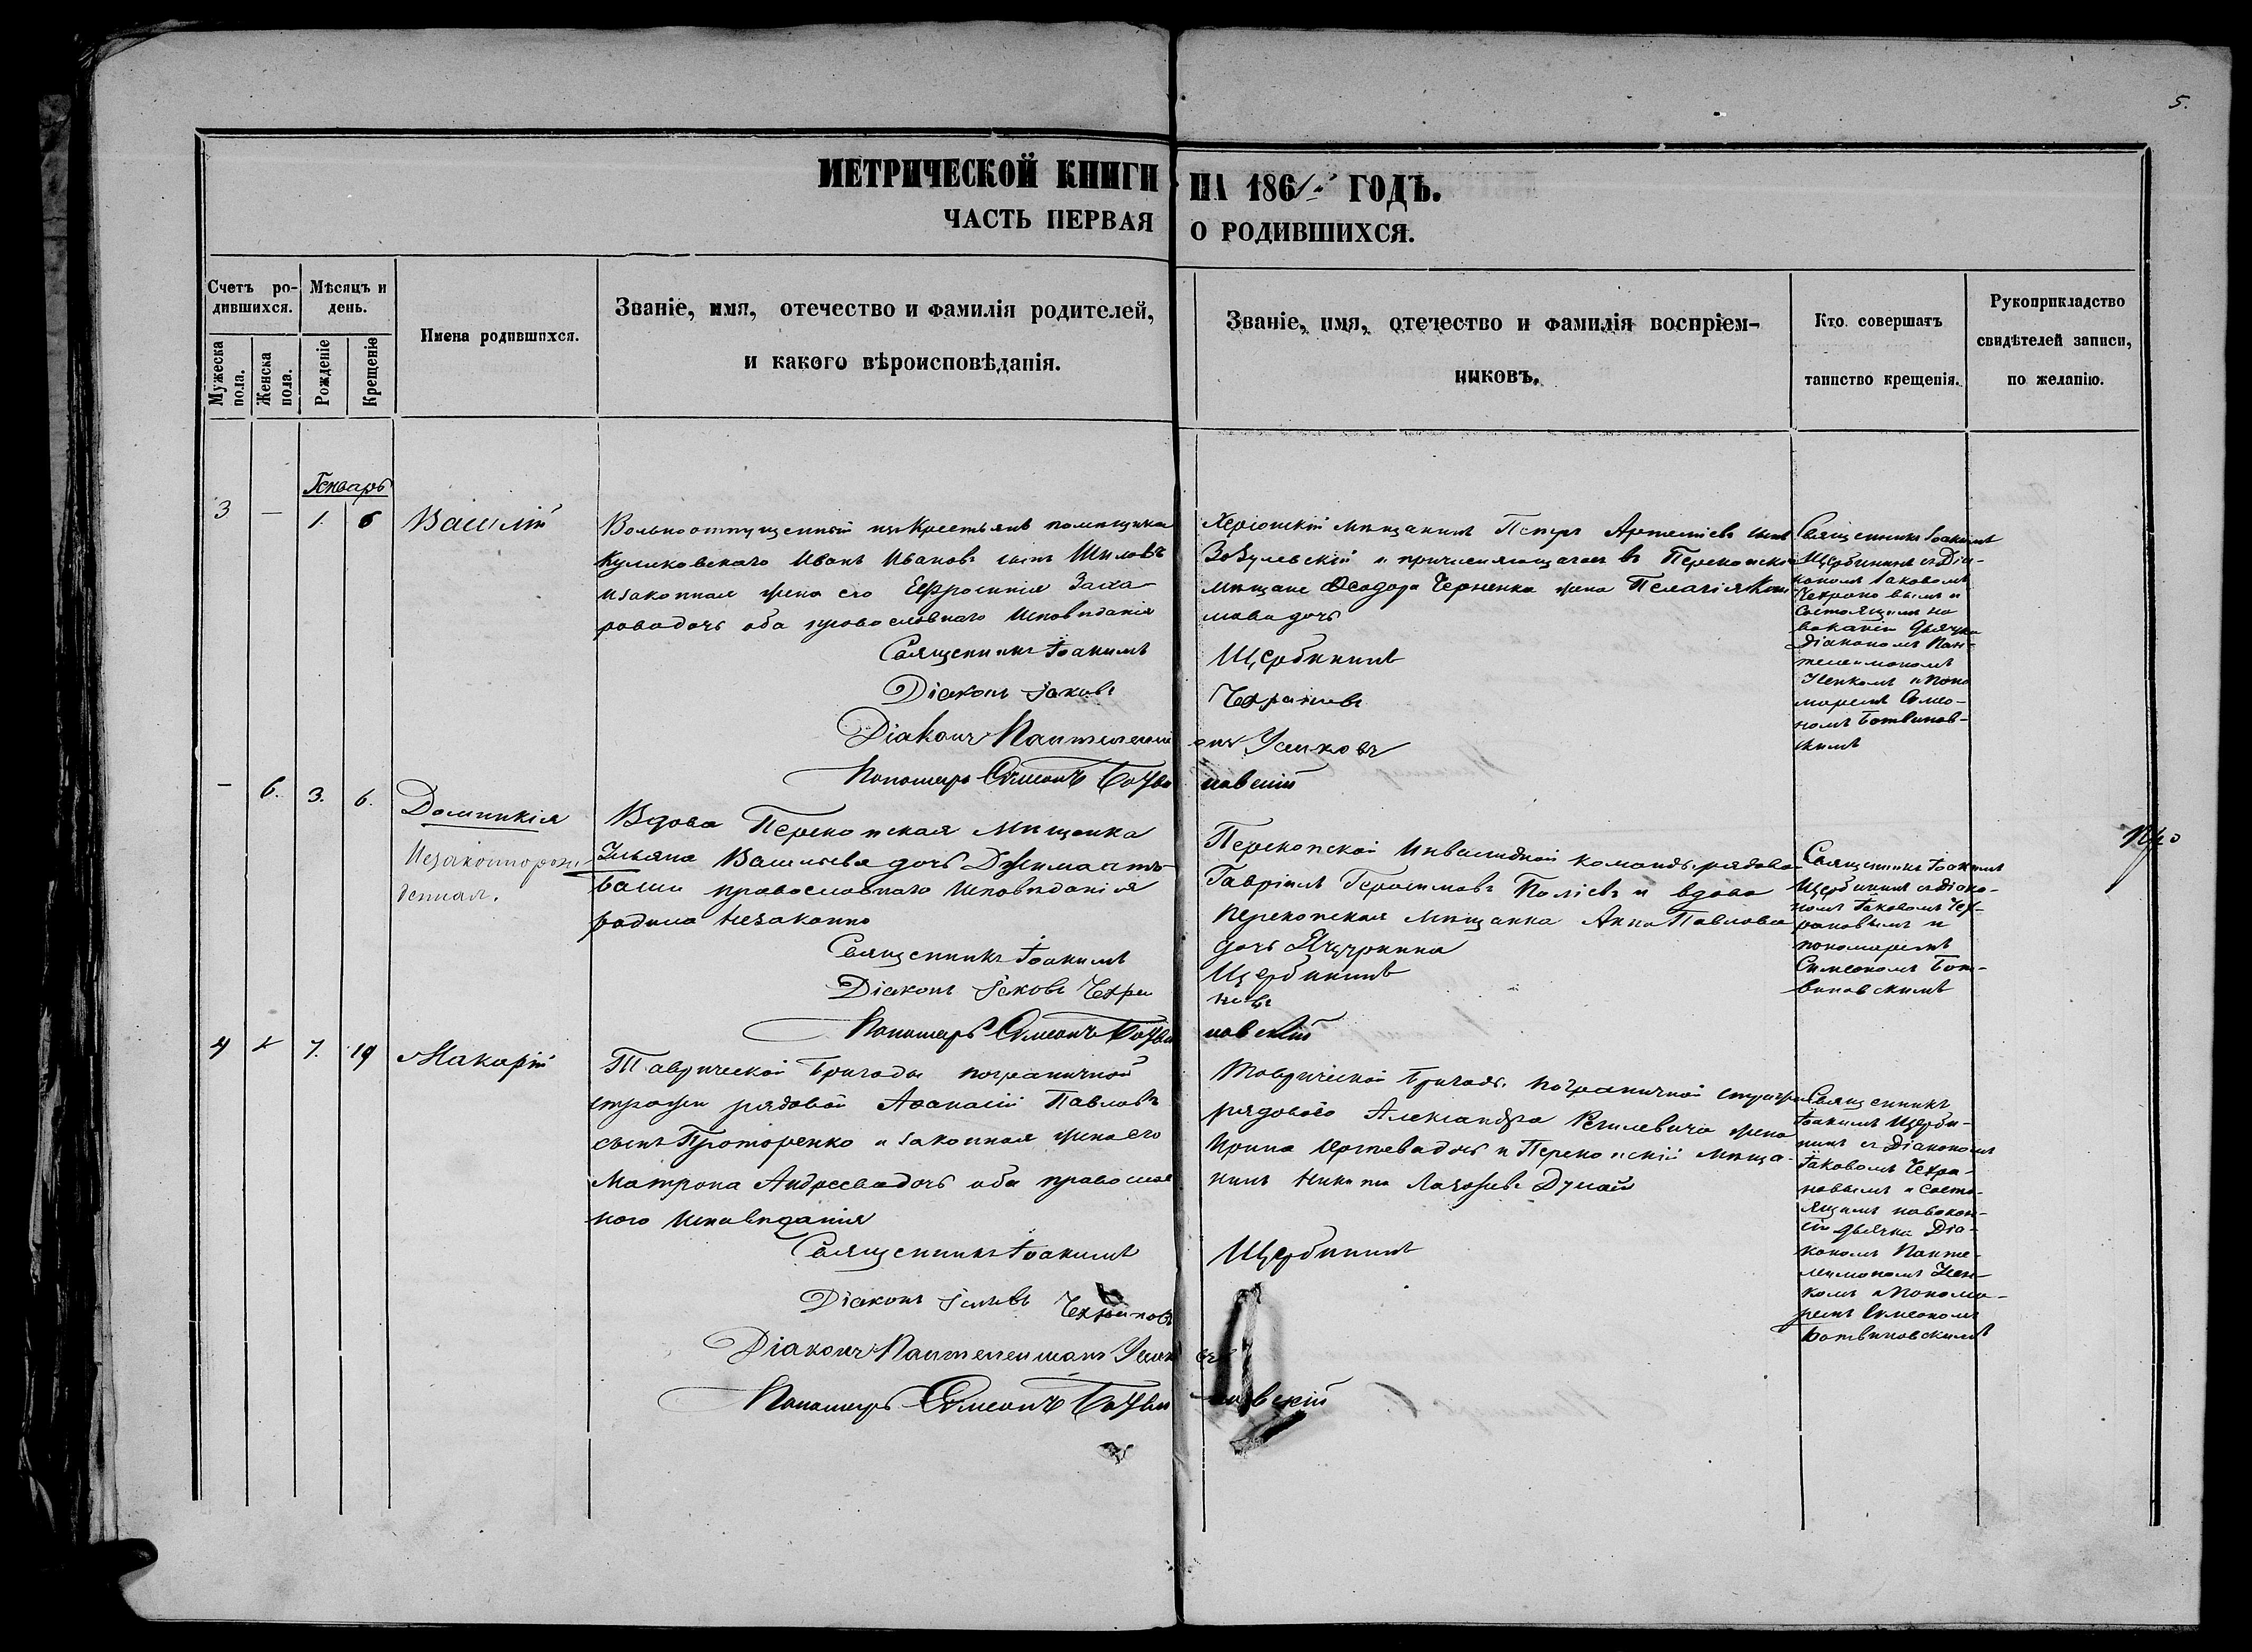 5.
МЕТРИЧЕСКОЙ КНИГИ НА 1861й ГОДЪ.
ЧАСТЬ ПЕРВАЯ О РОДИВШИХСЯ.
Счетъ ро-
дившихся.
Мужеска пола.
Женска пола.
Мѣсяцъ и
день.
Рожденіе
Крещеніе
Имена родившихся.
Званіе, имя, отечество и фамилія родителей,
и какого вѣроисповѣданія.
Званіе, имя, отечество и фамилія воспріем-
никовъ.
Кто совершатъ
таинство крещенія.
Рукоприкладство
свидѣтелей записи,
по желанію.
Генварь
3 — 1. 6 Василій
Вольноотпущенный изъ Крестьянъ помещика
Куликовскаго Иванъ Ивановъ сынъ Шиловъ
изаконная жена его Ефросинія Заха-
рова дочь оба православнаго Исповѣданія
Священникъ Іоакимъ Щербининъ
Діаконъ Іаковъ Чехрановъ
Діаконъ Пантелеимонъ Усиковъ
Пономарь Симеонъ Ботвиновскій
Херсонскій мѣщанинъ Петръ Артеміевъ сынъ
и причисляющагося въ Перекопскіе
мѣщане Феодора Черненка жена Пелагія
мова дочь
Священникъ Іоакимъ
Щербининъ съ Діа-
кономъ Іаковомъ
Чехрановымъ и
Состоящимъ на
ваканіи Дьячка
Діакономъ Пан-
телеимономъ
и Поно
маремъ Симео-
номъ Ботвинов-
скимъ
— 6. 3. 6. Домникія
Незаконнорож-
денная.
Вдова Перекопская Мѣщанка
Ульяна Васильева дочь
Баши православнаго Исповѣданія
родила незаконно
Священникъ Іоакимъ Щербининъ
Діаконъ Іаковъ Чехрановъ
Пономарь Симеонъ Ботвиновскій
Перекопской Инвалидной команды рядовой
Гавріилъ Герасимовъ и вдова
Перекопская Мѣщанка Анна Павлова
дочь
Священникъ Іоакимъ
Щербининъ съ Діако-
номъ Іаковомъ Чех-
рановымъ и
пономаремъ
Симеономъ Бот-
виновскимъ
4 7. 19 Макарій
Таврической Бригады пограничной
стражи рядовой Афанасій Павловъ
сынъ Проторенко и законная жена его
Матрона Андреева дочь оба православ
ного Исповѣданія
Священникъ Іоакимъ Щербининъ
Діаконъ Іаковъ Чехрановъ
Діаконъ Пантелеимонъ Усиковъ
Пономарь Симеонъ Ботвиновскій
Таврической Бригады пограничной стражи
рядоваго Александра жена
Ирина дочь и Перекопскій мѣща-
нинъ Никита Лазаревъ Дунай
Священникъ
Іоакимъ Щерби-
нинъ съ Діакономъ
Іаковомъ Чехра-
новымъ и состо-
ящимъ на вакан-
сіи дьячка Діа-
кономъ Панте-
леимономъ Уси-
комъ и Понома-
ремъ Симеономъ
Ботвиновскимъ